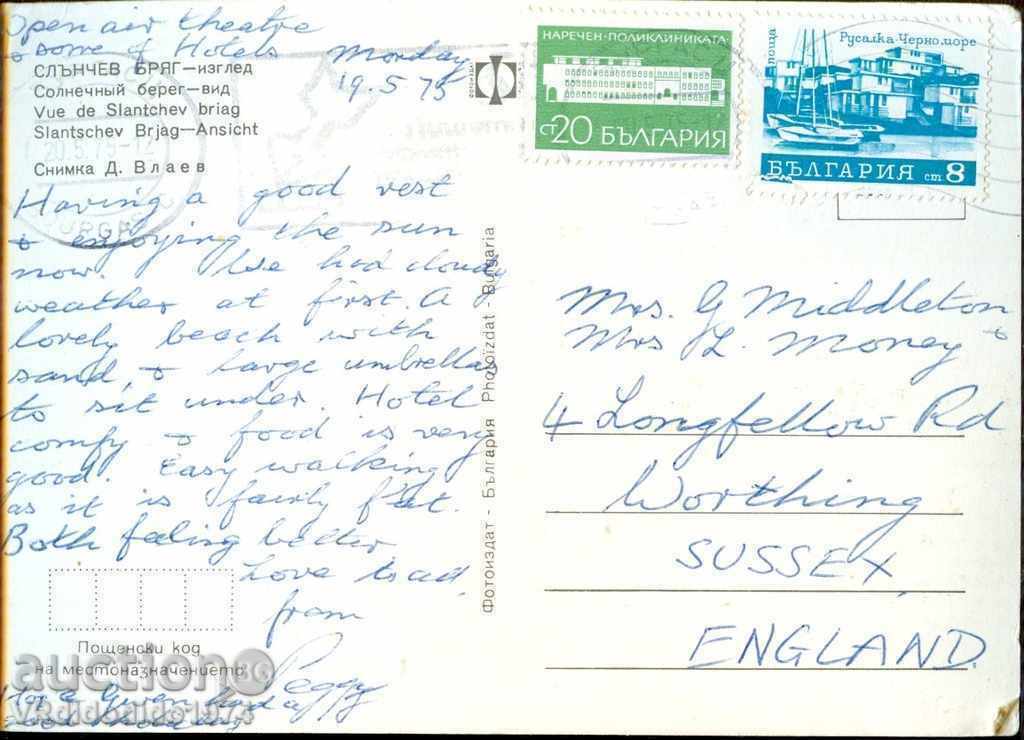 Open air theatre
& some of Hotels Monday
19.5.75
СЛЪНЧЕВ БРЯГ—изглед
Солнечный берег—вид
Vue de Slantchev briag
Slantschev Brjag—Ansicht
Снимка Д. Влаев
Having a good rest
& enjoying the sun
now. We had cloudy
weather at first. A
lovely beach with
sand, & large umbrellas
to sit under. Hotel
comfy & food is very
good. Easy walking
as it is fairly flat.
Both feeling better
Love to all
from
Peggy
good
Пощенски код
на местоназначението
Фотоиздат - България Photoizdat - Bulgaria
НАРЕЧЕН-ПОЛИКЛИНИКАТА
ст 20 БЪЛГАРИЯ
поща
Русалка-Черно море
БЪЛГАРИЯ ст 8
20.5.75-12
Mrs. G Middleton
& Mrs L. Money
4 Longfellow Rd
Worthing
SUSSEX
ENGLAND
auction